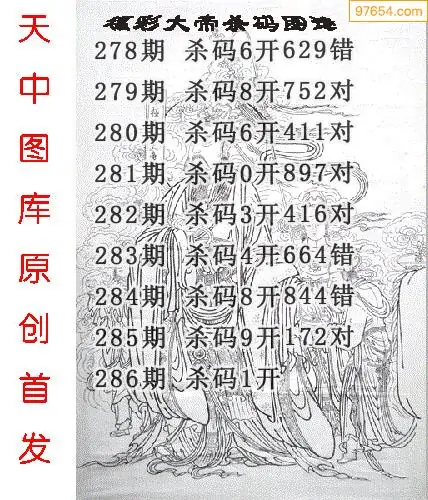 97654.com
天中图库原创首发
福彩大帝杀码图谜
278期 杀码6开629错
279期 杀码8开752对
280期 杀码6开411对
281期 杀码0开897对
282期 杀码3开416对
283期 杀码4开664错
284期 杀码8开844错
285期 杀码9开172对
286期 杀码1开